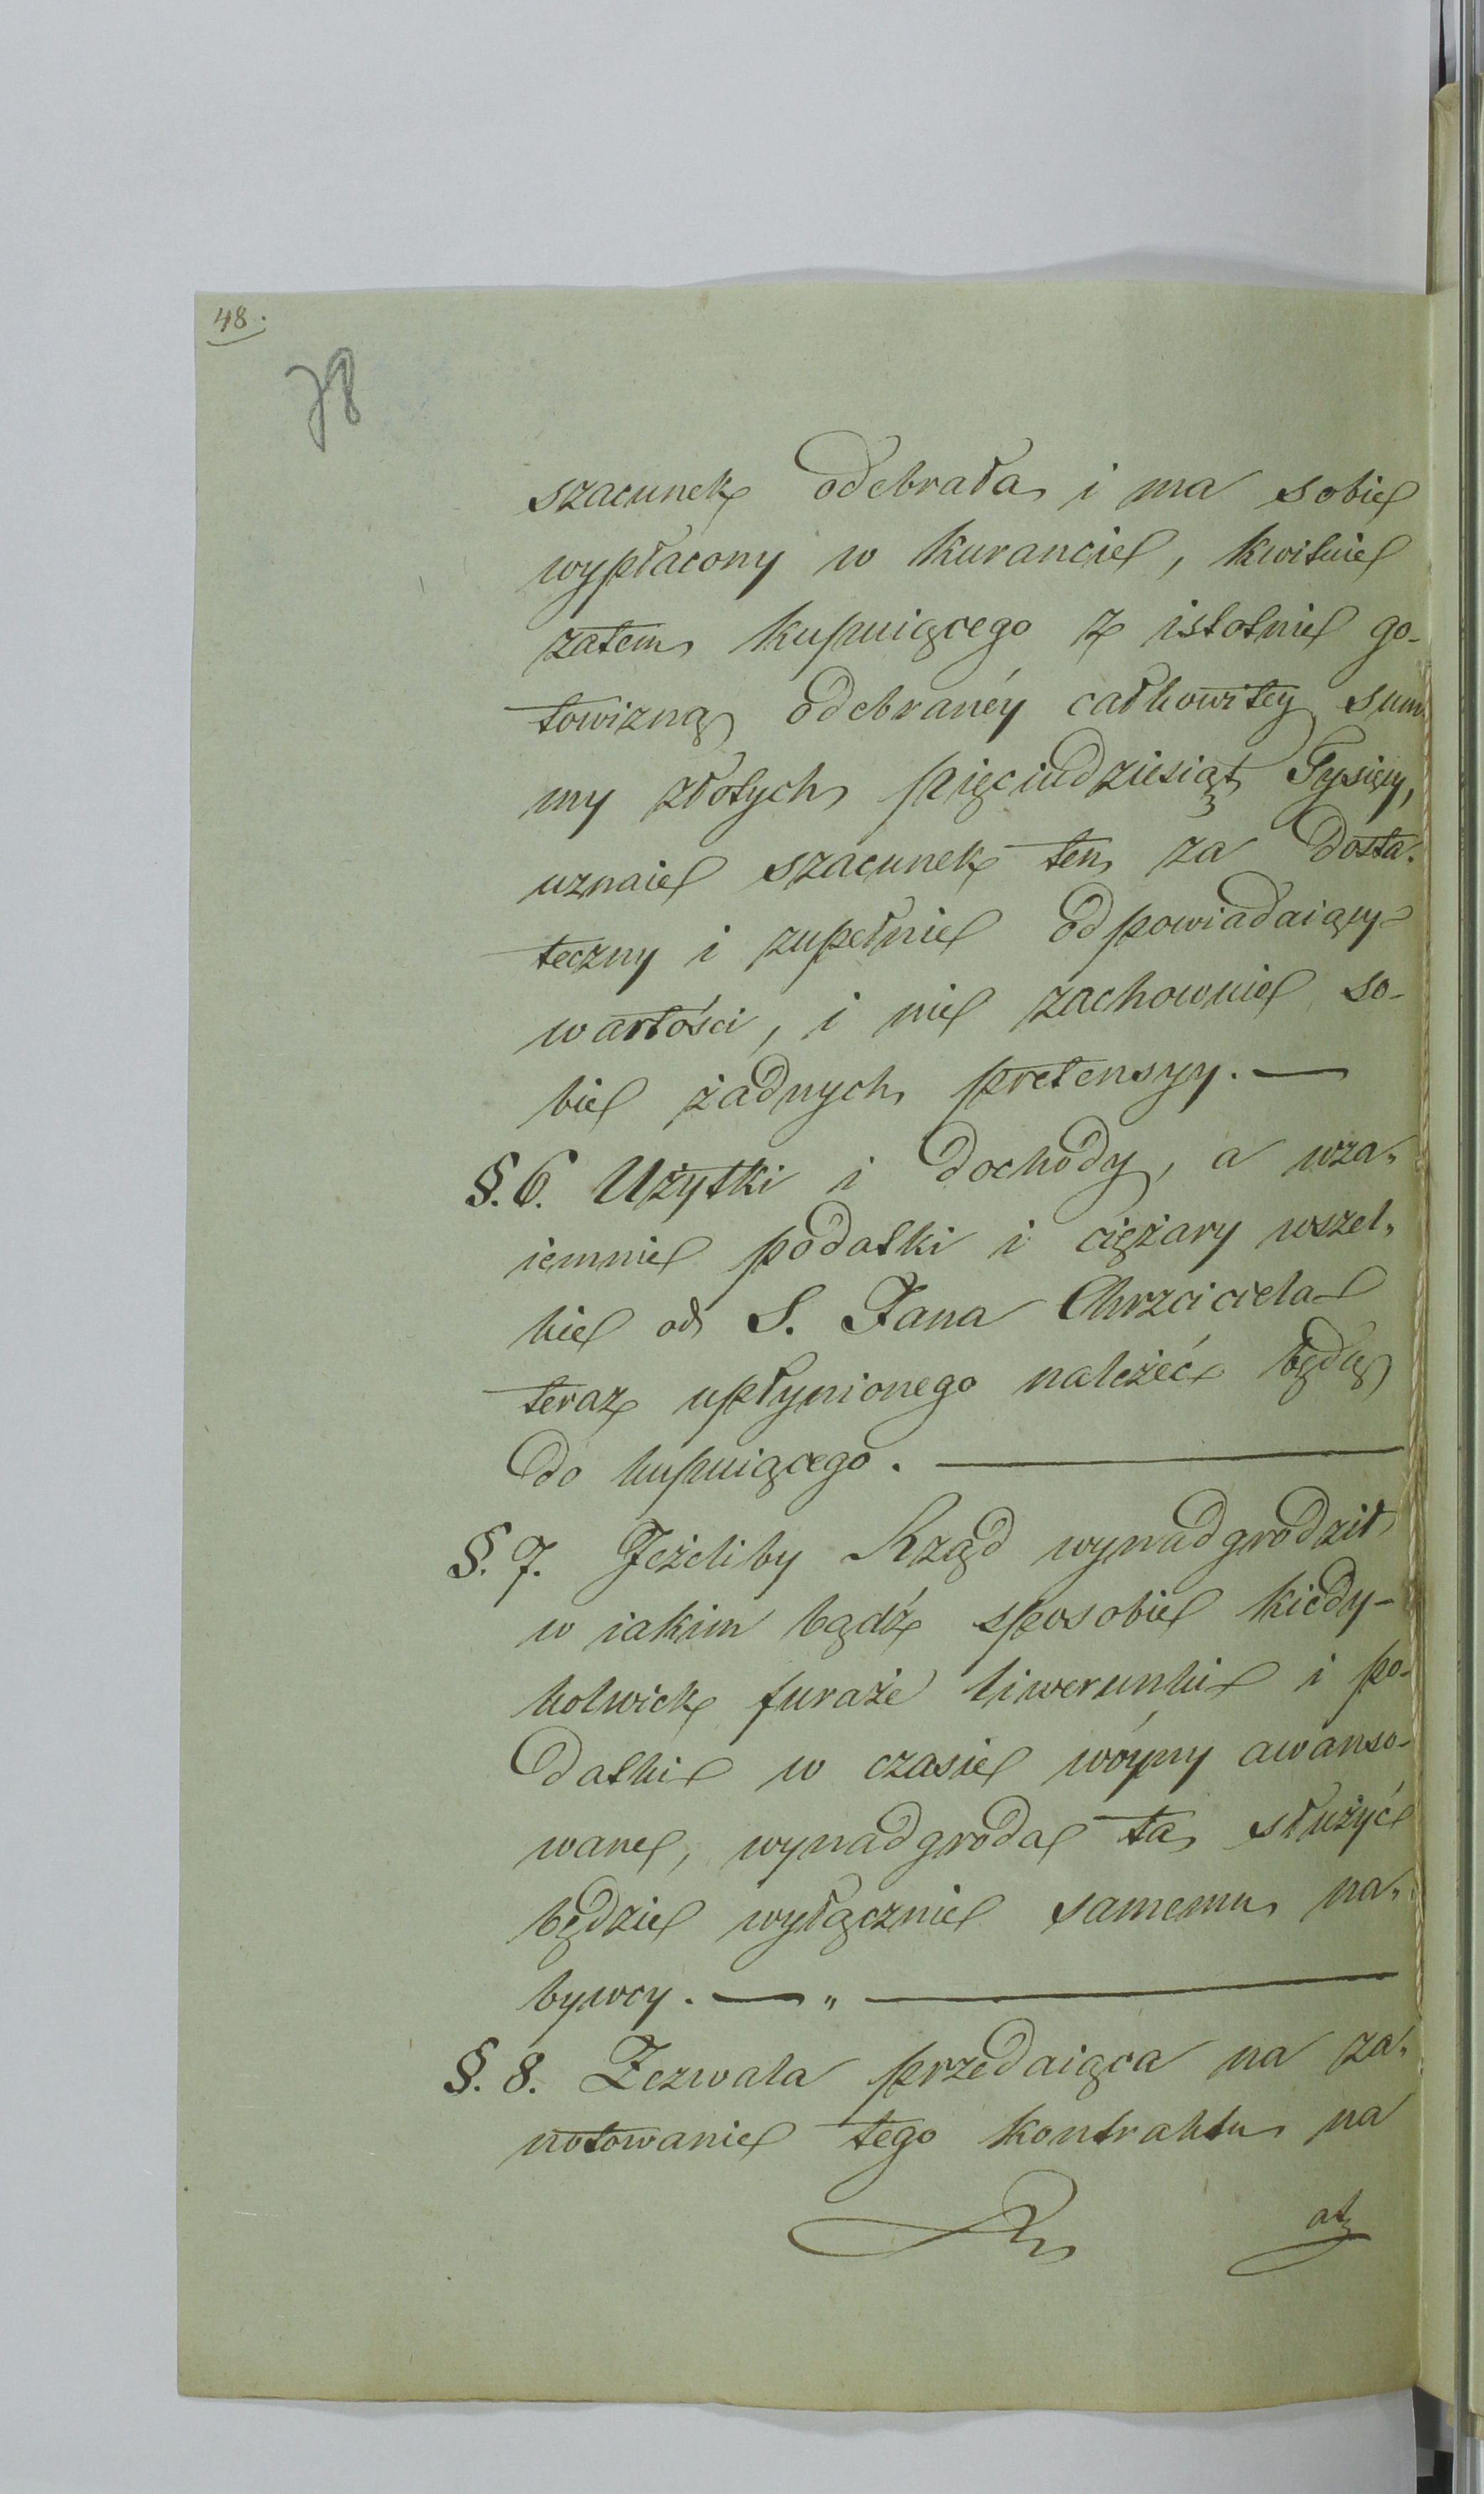 48.
78
szacunek odebrała i ma sobie
wypłacony w kurancie, kwituie
zatem kupuiącego z istotnie go-
towizną odebranéy całkowitey sum
my złotych pięciudziesiąt Tysięcy,
uznaie szacunek ten za dosta-
teczny i zupełnie odpowiadaiący
wartości, i nie zachowuie so-
bie żadnych pretensyy. —
§. 6. Użytki i dochody, a wza-
iemnie podatki i ciężary wszel-
kie od S. Jana Chrzciciela
teraz upłynionego należeć będą
do kupuiącego. —
§. 7. Jeżeliby Rząd wynadgrodził
w iakim bądź sposobie kiedy-
kolwiek furaże liwerunki i po-
datki w czasie wóyny awanso-
wane, wynadgroda ta służyć
będzie wyłącznie samemu na-
bywcy. — „ —
§. 8. Zezwala przedaiąca na za-
notowanie tego kontraktu na